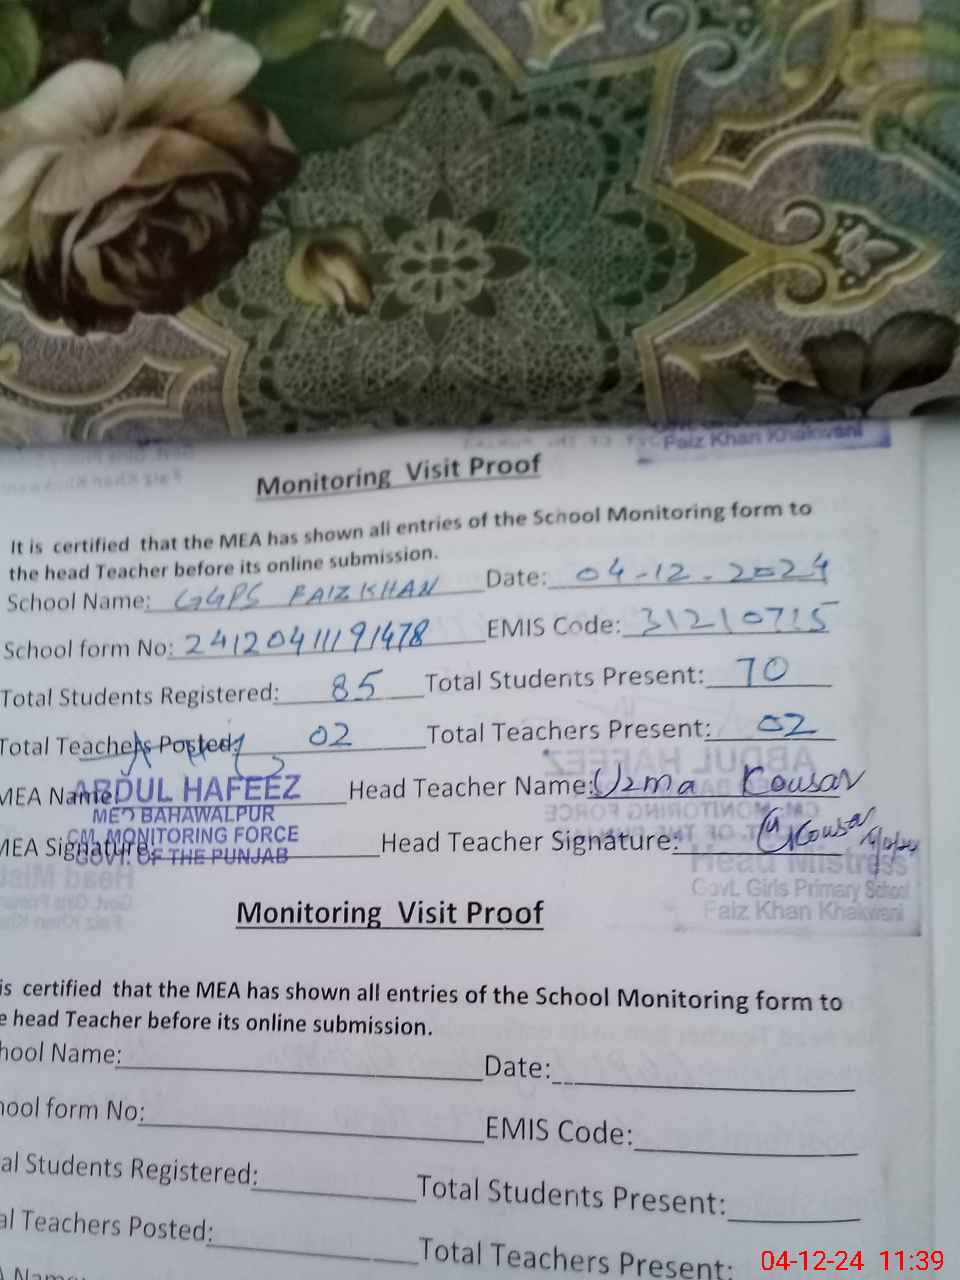 Faiz Khan Khakwani
Monitoring Visit Proof
It is certified that the MEA has shown all entries of the School Monitoring form to
the head Teacher before its online submission.
School Name: GGPS FAIZ KHAN Date: 04-12-2024
School form No: 24120411191478 EMIS Code: 31210715
Total Students Registered: 85 Total Students Present: 70
Total Teachers Posted: 02 Total Teachers Present: 02
MEA Name ABDUL HAFEEZ Head Teacher Name: Uzma Kousar
MEO BAHAWALPUR
CM, MONITORING FORCE
MEA Signature: Head Teacher Signature: Kousar
GOVT. OF THE PUNJAB
Head Mistress
Govt. Girls Primary School
Faiz Khan Khakwani
Monitoring Visit Proof
is certified that the MEA has shown all entries of the School Monitoring form to
e head Teacher before its online submission.
hool Name: Date:
hool form No: EMIS Code:
al Students Registered: Total Students Present:
al Teachers Posted: Total Teachers Present:
04-12-24 11:39